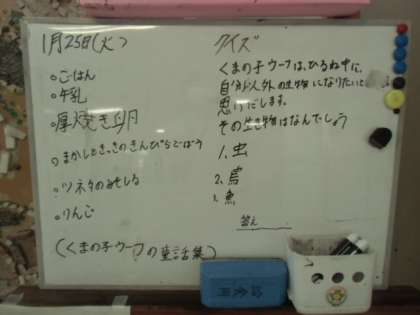 1月25日(火)
○ごはん
○牛乳
○厚焼き卵
○まかしときっきのきんぴらごぼう
○ツネタのみそしる
○りんご
(くまの子ウーフの童話集)
クイズ
くまの子ウーフは、ひるね中に、
自分以外の生物になりたいと
思いだします。
その生き物はなんでしょう
1. 虫
2. 鳥
3. 魚
答え